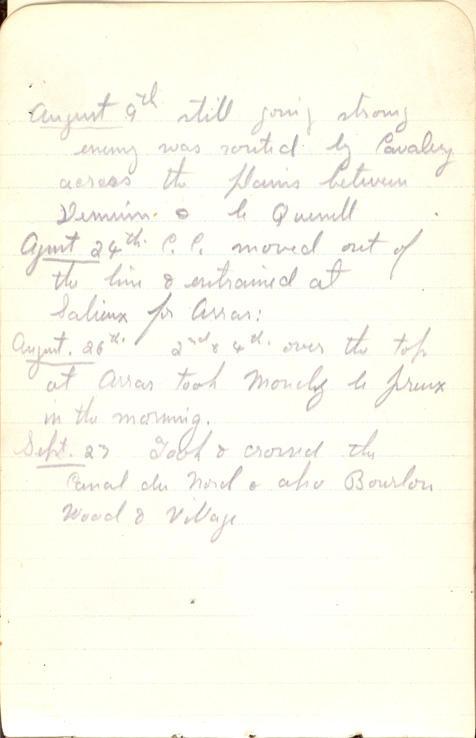 August 9th still going strong
enemy was routed by Cavalry
across the plains between
Demuin & le Quenell
Agust 24th C.C. moved out of
the line & entrained at
Salieux for Arras:
August. 26th. 2nd & 4th. over the top
at Arras took Monchy le preux
in the morning.
Sept. 27 Took & crossed the
Canal du Nord & also Bourlon
Wood & Village